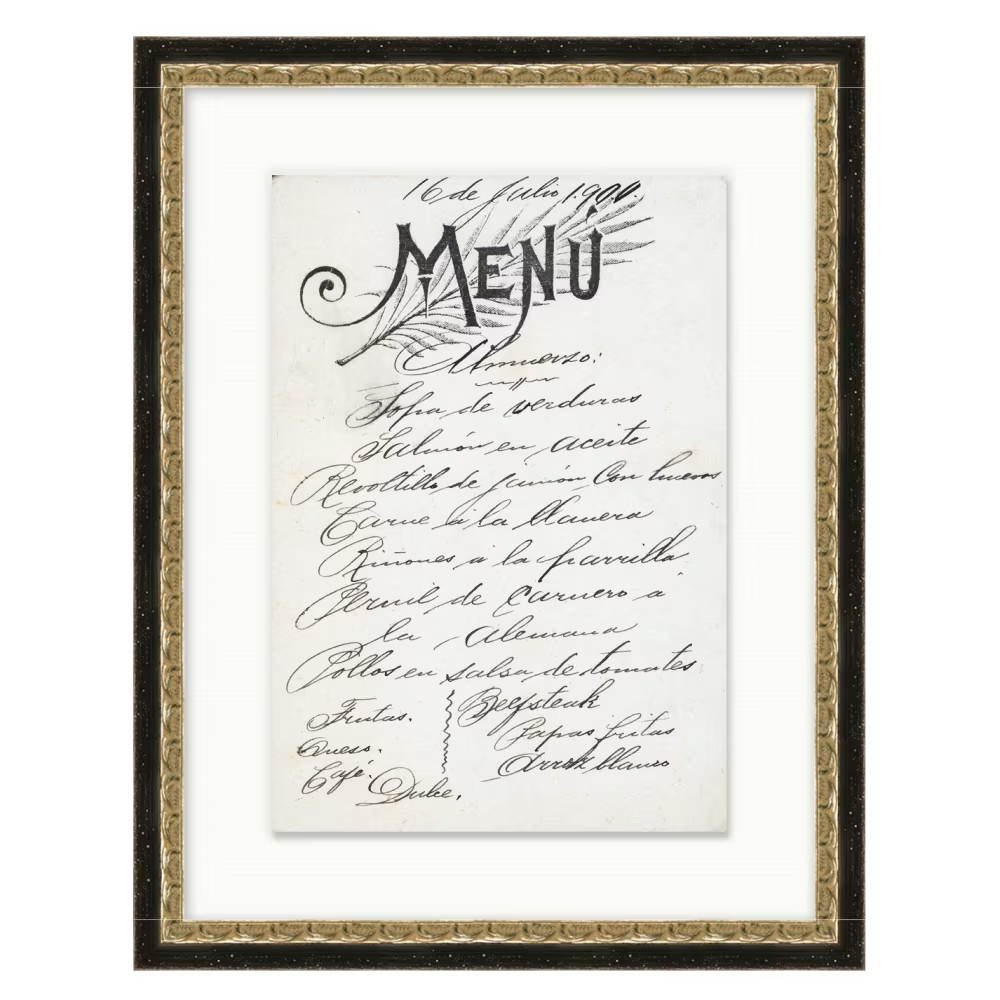 16 de Julio 1900.
MENÚ
Almuerzo:
Sopa de verduras
Salmón en aceite
Revoltillo de jamón con huevos
Carne á la llanera
Riñones á la parrilla
Pernil de Carnero á
la Alemana
Pollos en salsa de tomates
Frutas.
Queso.
Café.
Dulce.
Beefsteak
Papas fritas
Arroz blanco